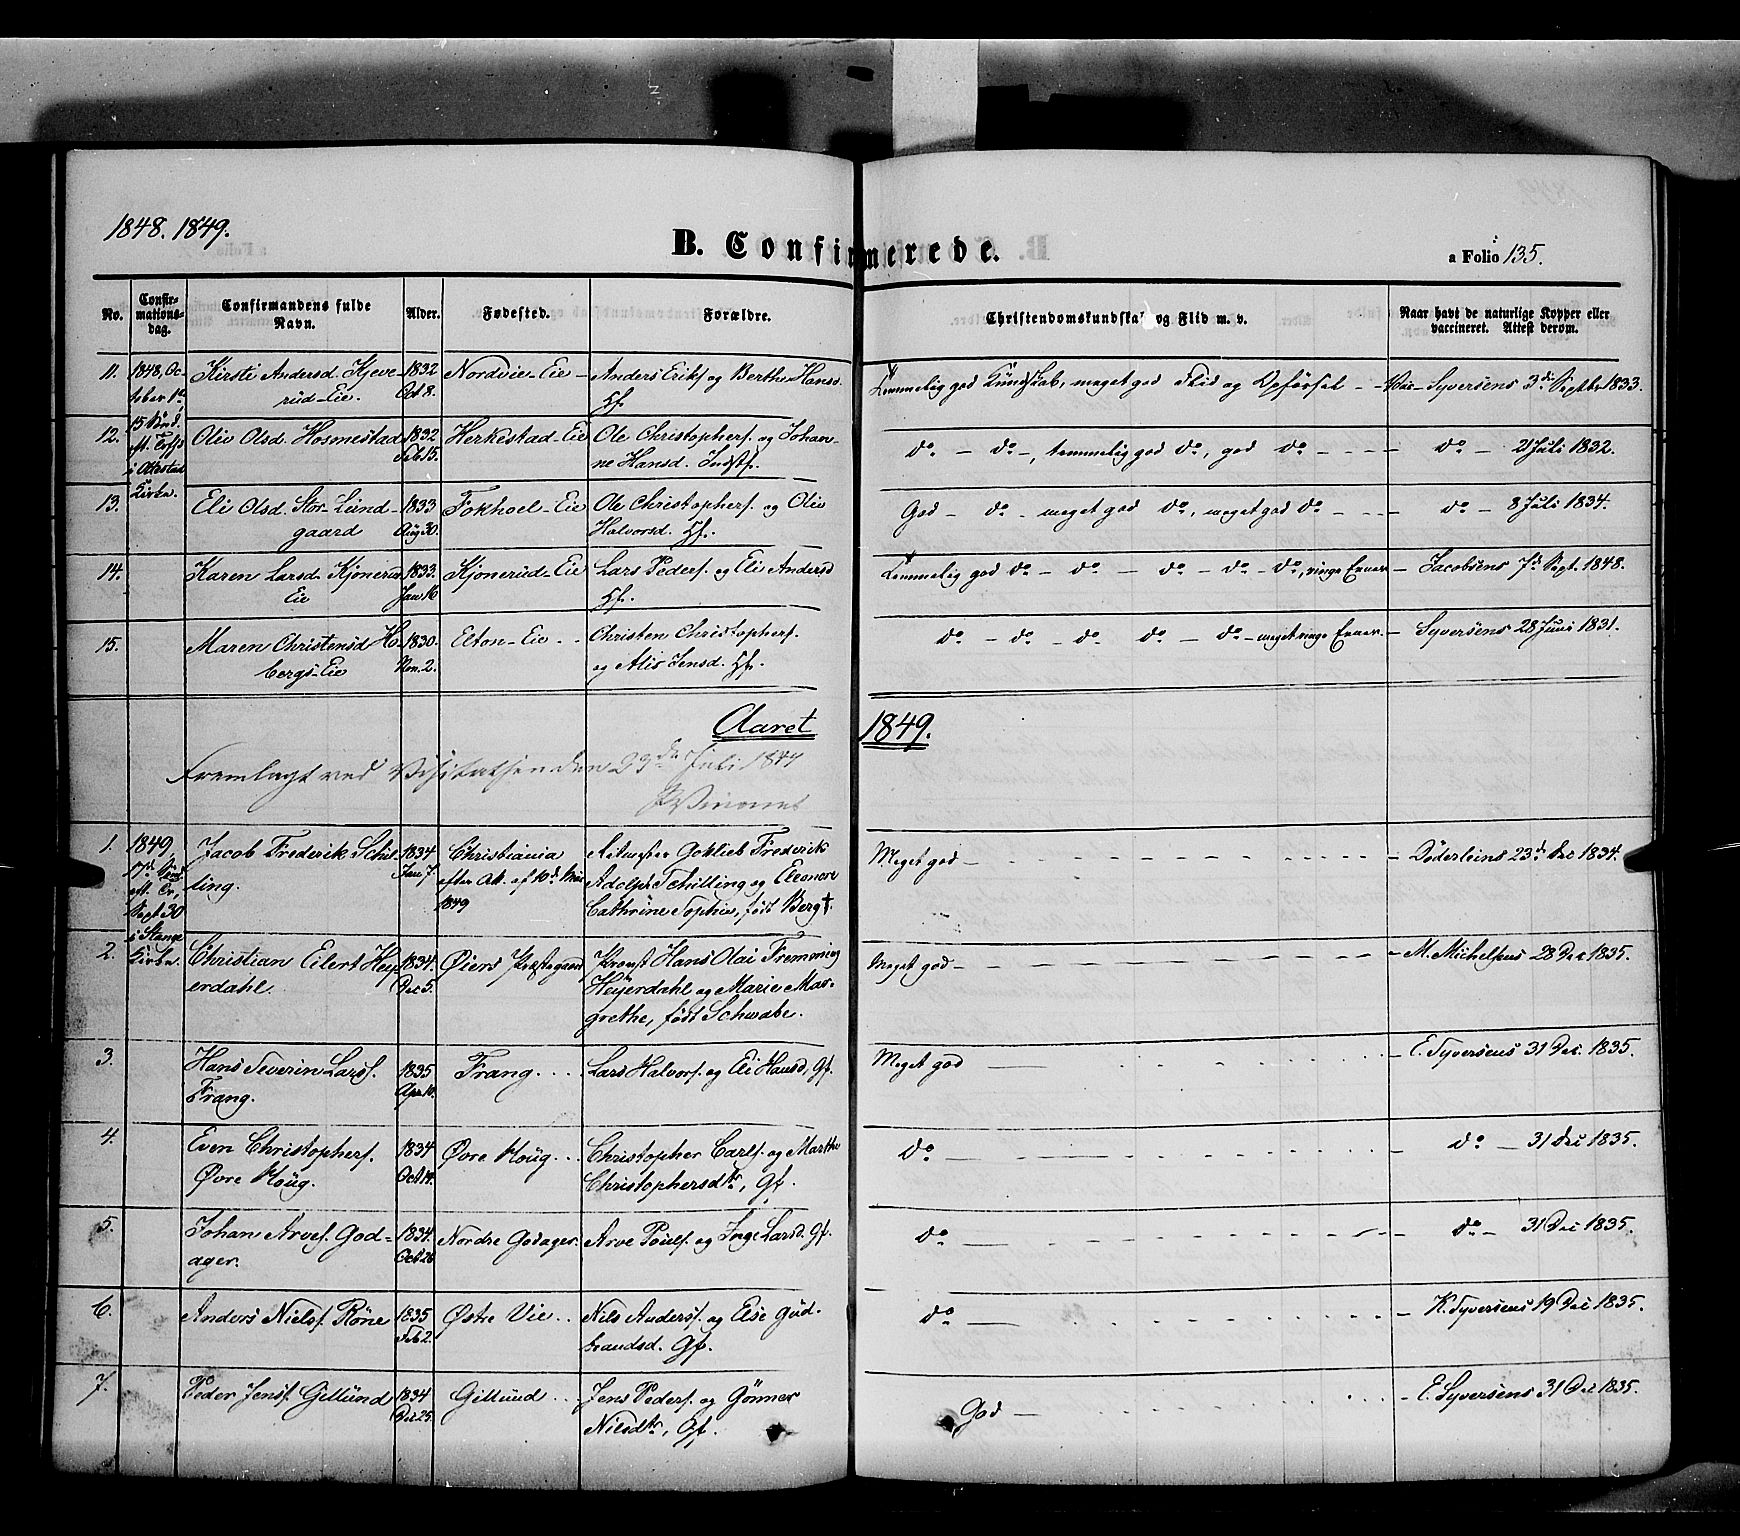 1848. 1849.
B. Confirmerede.
a Folio 135.
No.
Confirmationsdag.
Confirmandens fulde Navn.
Alder.
Fødested.
Forældre.
Christendomskundskab og Flid m. v.
Naar havt de naturlige Kopper eller vaccineret. Attest derom.
11. 1848, Oc- Kirsti Andersd. Kjeve- 1832 Nordvie-Eie Anders Eriks. og Berthe Hansd. Temmelig god Kundskab, meget god Flid og Opførsel Syversens 3die Septbr 1833.
tober 1ste rud-Eie. Oct 8. Hf.
12. 15 Sønd. Oliv Olsd. Hosmestad 1832 Herkestad-Eie Ole Christophers. og Johan- do - do -, temmelig god do, god do - do - 21 Juli 1832.
eft. Trefs Feb. 15. ne Hansd. Indstf.
i Ottestad
Kirke.
13. Eli Olsd. Stor-Lund- 1833 Fokhoel-Eie Ole Christophers. og Oliv God - do - meget god do, meget god do - do - 8 Juli 1834.
gaard Aug 30. Halvorsd. Hf.
14. Karen Larsd. Kjonerud 1833. Kjonerud-Eie Lars Peders. og Eli Andersd Temmelig god do - do - do - do - do, ringe Evner - Jacobsens 7de Sept. 1848.
Eie Jan 16 Hf.
15. Maren Christensd Ho- 1830. Elton-Eie Christen Christophers. do - do - do - do - do - meget ringe Evner - Syversens 28 Juni 1831.
bergs-Eie Nov. 2. og Alis Jensd. Hf.
Aaret 1849.
Fremlagt ved Visitatsen den 23de Juli 1849
1. 1849 Jacob Frederik Schil- 1834 Christiania Ritmester Gotlieb Frederik Meget god - Døderleins 23de Dec 1834.
17de Sønd ling. Jan 7. efter Att. af 10de Mai Adolph Schilling og Eleonore
eft. Tr., 1849 Cathrine Sophie, født Berg†.
Sept 30
i Stange
Kirke.
2. Christian Eilert Hey- 1834. Øiers Præstegaard Provst Hans Olai Fremming Meget god - M. Michelsens 28 Dec 1835.
erdahl. Dec 5. Heyerdahl og Marie Mar-
grethe, født Schwabe.
3. Hans Severin Larss. 1835 Frang Lars Halvors. og Eli Hansd, Gf. Meget god - E. Syversens 31 Dec. 1835.
Frang. Apr 10.
4. Even Christophers. 1834 Øvre Houg Christopher Carls. og Marthe do - do - 31 Dec 1835.
Øvre Houg. Oct 14. Christophersdtr, Gf.
5. Johan Arves. God- 1834. Nordre Godager. Arve Pouls. og Inge Larsd. Gf. do - do - 31 Dec 1835.
ager. Oct 28
6. Anders Niels. Røne 1835 Østre Vie Nils Anders. og Else Gud- do - K. Syversens 19 Dec 1835.
Feb 2. brandsd. Gf.
7. Peder Jens. Gillund 1834 Gillund Jens Peders. og Gönner God - E. Syversens 31 Dec 1835.
Dec 25. Nilsdtr, Gf.